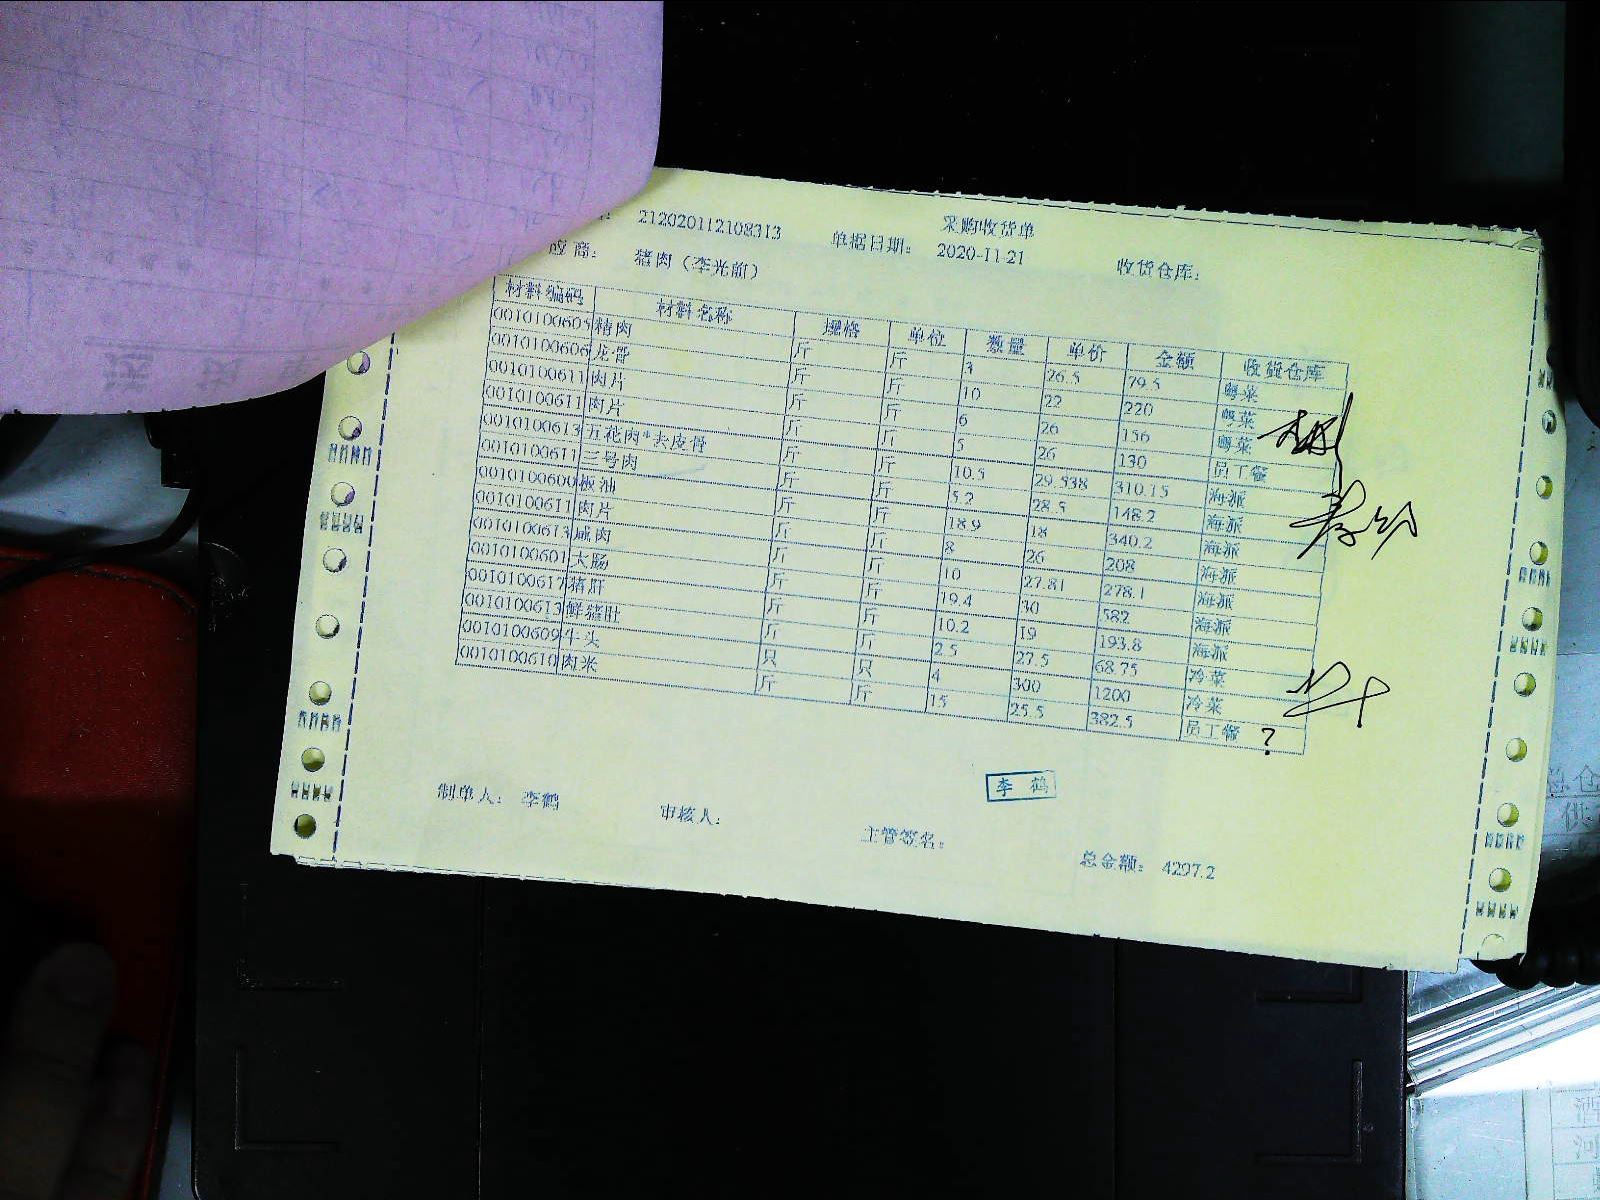 采购收货单
212020112108313 单据日期: 2020-11-21 收货仓库:
应商: 猪肉（李光前）
材料编码 材料名称 规格 单位 数量 单价 金额 收货仓库
0010100605 精肉 斤 斤 3 26.5 79.5 粤菜
0010100606 龙骨 斤 斤 10 22 220 粤菜
0010100611 肉片 斤 斤 6 26 156 粤菜
0010100611 肉片 斤 斤 5 26 130 员工餐
0010100613 五花肉*去皮骨 斤 斤 10.5 29.538 310.15 海派
0010100611 三号肉 斤 斤 5.2 28.5 148.2 海派
0010100600 板油 斤 斤 18.9 18 340.2 海派
0010100611 肉片 斤 斤 8 26 208 海派
0010100613 咸肉 斤 斤 10 27.81 278.1 海派
0010100601 大肠 斤 斤 19.4 30 582 海派
0010100617 猪肝 斤 斤 10.2 19 193.8 海派
0010100613 鲜猪肚 斤 斤 2.5 27.5 68.75 冷菜
0010100609 牛头 只 只 4 300 1200 冷菜
0010100610 肉米 斤 斤 15 25.5 382.5 员工餐 ?
李鹤
制单人: 李鹤 审核人: 主管签名: 总金额: 4297.2